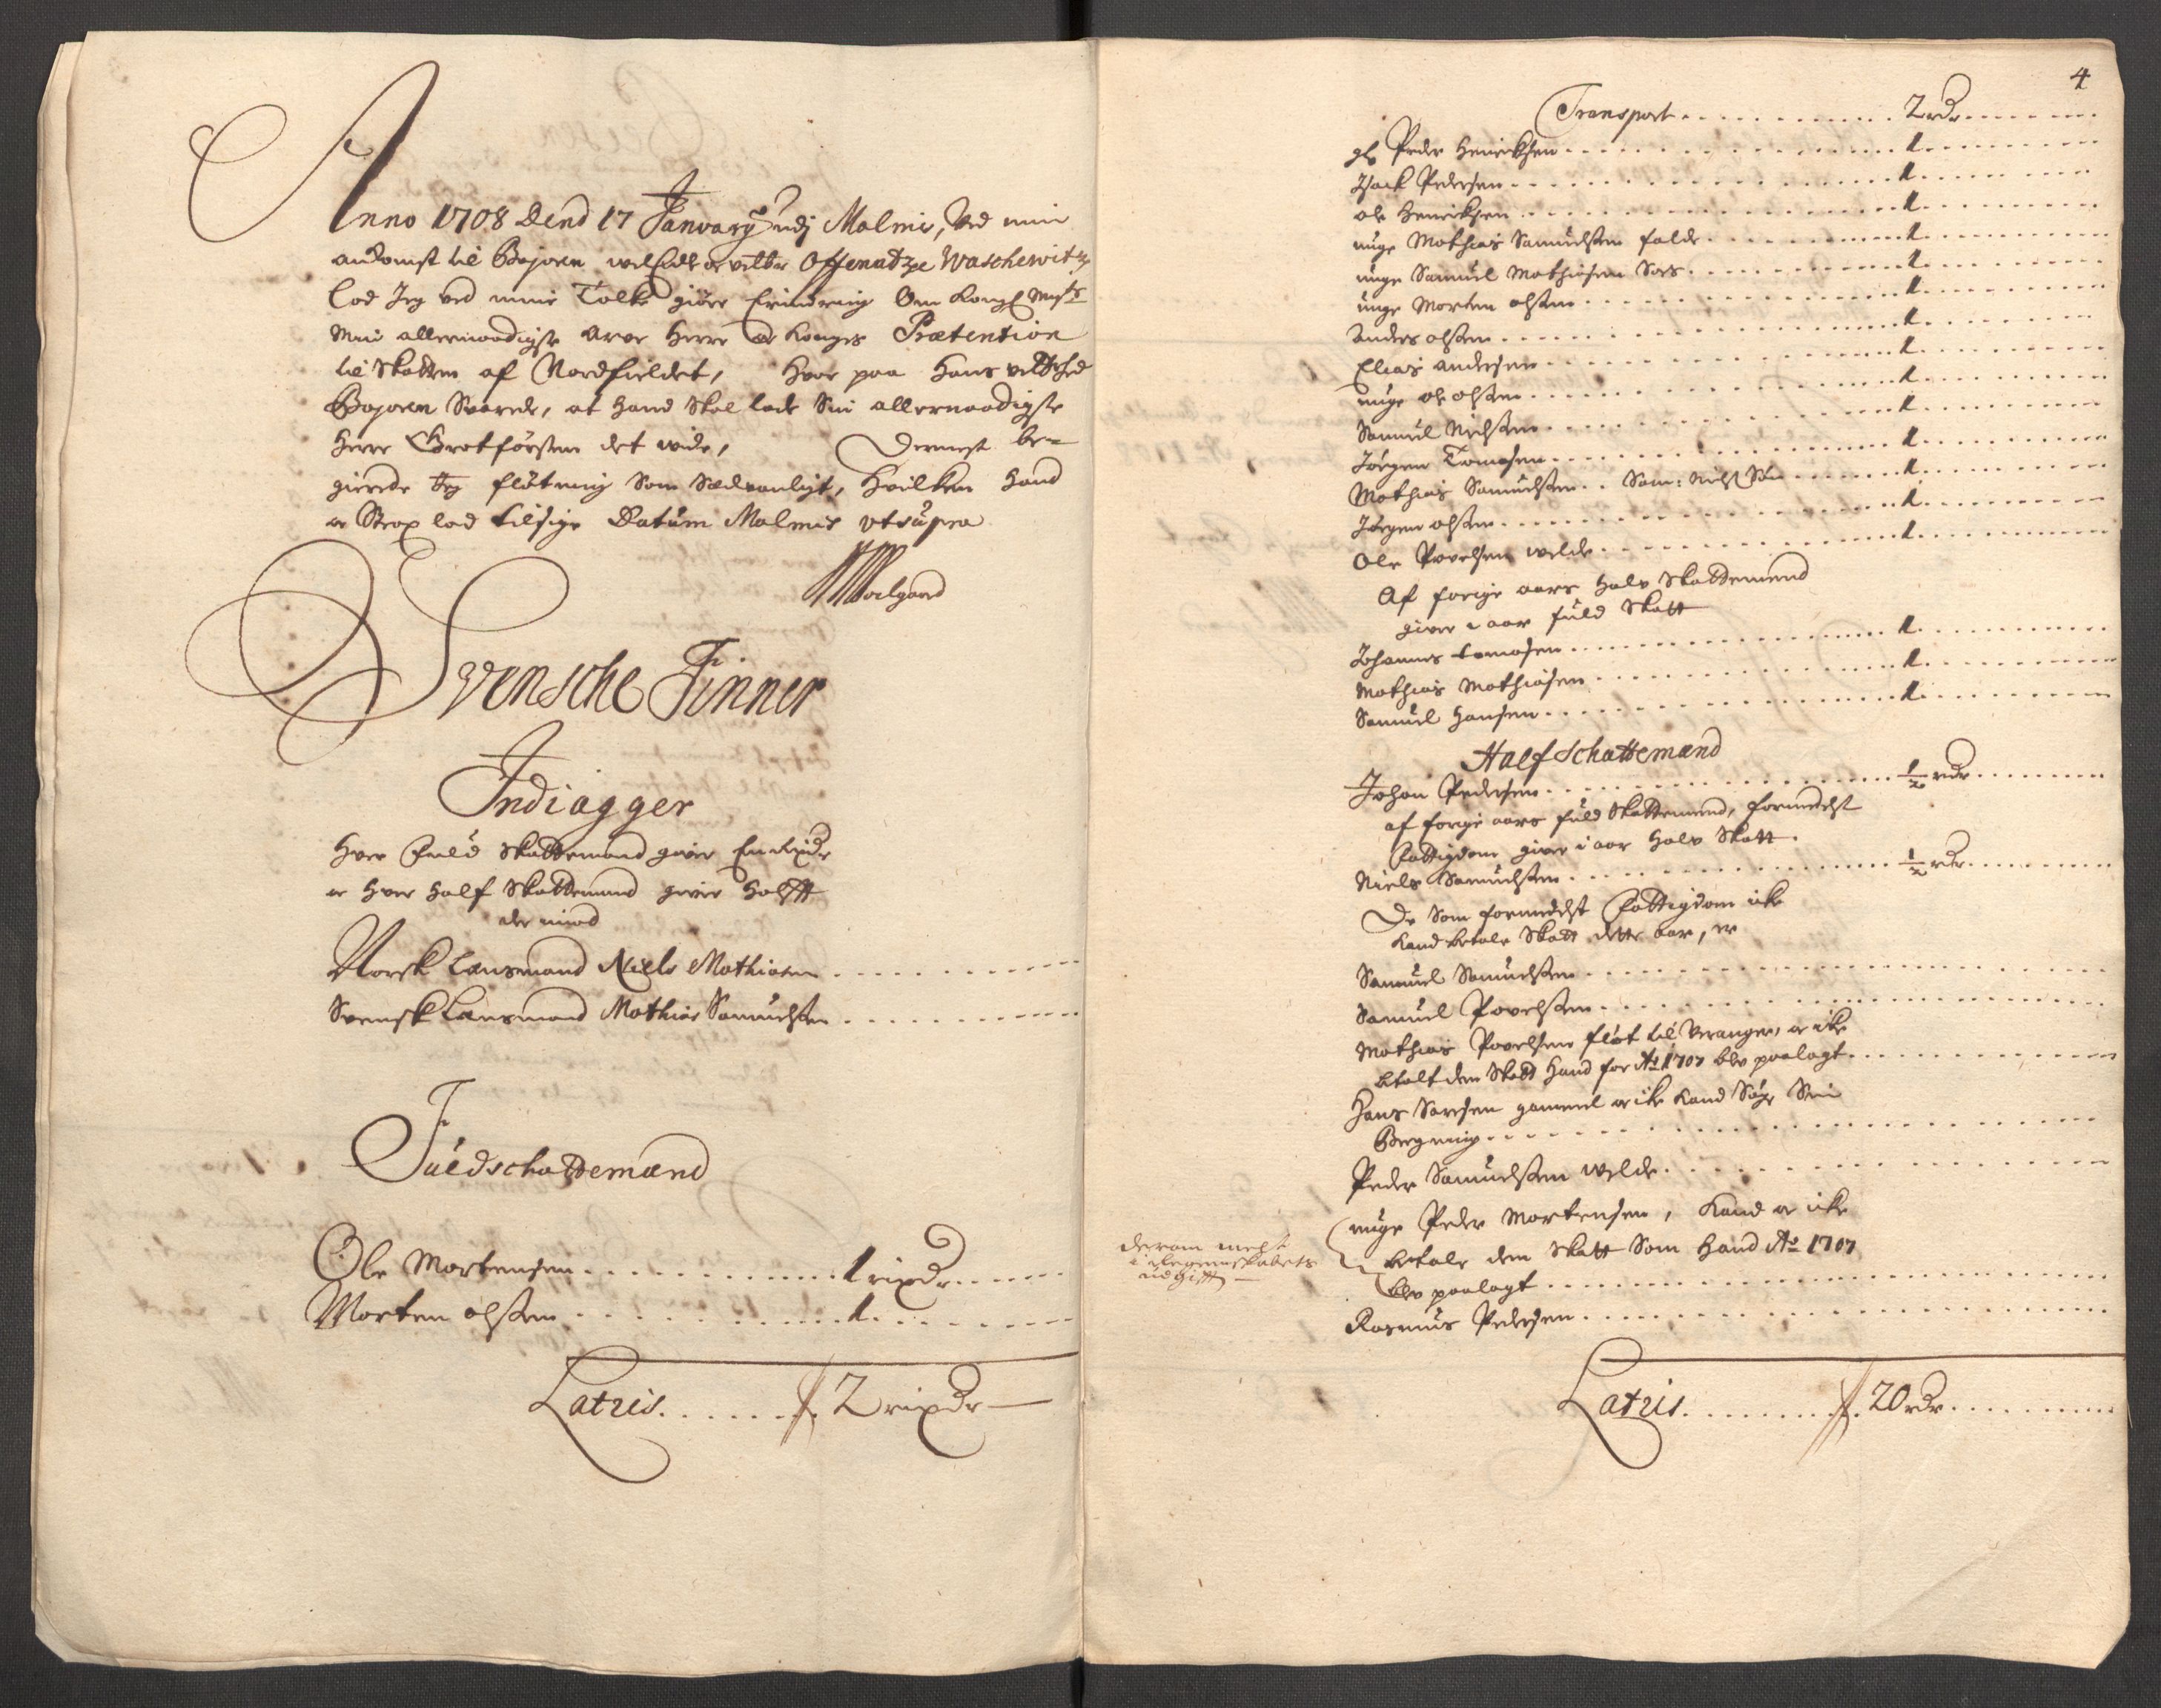 Anno 1708 Dend 17 January udj Malmis, Ved min
ankomst til Bojoren Offenatzie Waschewitz
Lod Jeg ved min Tolk giøre Erindring Om Kongl Maÿts
min allernaadigste Arve Herre og Konges Prætention
til Skatten af Nordfieldet, Hvor paa Hans
Bojoren Svarede, at Hand Skal lade Sin allernaadigste
Herre Grotførsten det vide, Dernest be-
gierede Jeg fløtning Som Sædvanligt, Hvilken Hand
og Strax lod tilsige Datum Malmis ut supra
Svensche Finner
Indiagger
Hver Fuld Skattemand giver En Rixdr
og Hver Half Skattemand giver Halfft
der imod
Norsk Lensmand Niels Mathiasen
Svensk Lensmand Mathias Samuelsen
Fuldschattemænd
Ole Mortensen 1 rixdr
Morten olsen 1
Latris 2 rixdr
4
Transport 2 rdr
gl Peder Henriksen 1
Isack Pedersen 1
ole Henriksen 1
unge Mathias Samuelsen falde 1
unge Samuel Mathiasen 1
unge Morten olsen 1
Anders olsen 1
Elias Andersen 1
unge ole olsen 1
Samuel Nielsen 1
Jørgen Tomasen 1
Mathias Samuelsen Sam: Niels Søn 1
Jørgen olsen 1
Ole Povelsen welde 1
Af forige aars Halv Skattemend
giver i aar fuld Skatt
Johannes tomasen 1
Mathias Mathiasen 1
Samuel Hansen 1
Half Schattemænd
Johan Pedersen 1/2 rdr
af forige aars fuld Skattemend, formedelst
Fattigdom giver i aar Halv Skatt.
Niels Samuelsen 1/2 rdr
De Som formedelst Fattigdom icke
kand betale Skatt dette aar, er
Samuel Samuelsen
Samuel Povelsen
Mathias Povelsen fløt til Veranger, og icke
betalt den Skatt Hand for Ao 1707 blev paalagt
Hans Sarsen gammel og icke kand Søge Sin
Bergning
Peder Samuelsen welde
unge Peder Mortensen, kand og icke
betale den Skatt Som Hand Ao 1707
blev paalagt
derom
i Regenskabets
udgifft
Rasmus Pedersen
Latris 20 rdr